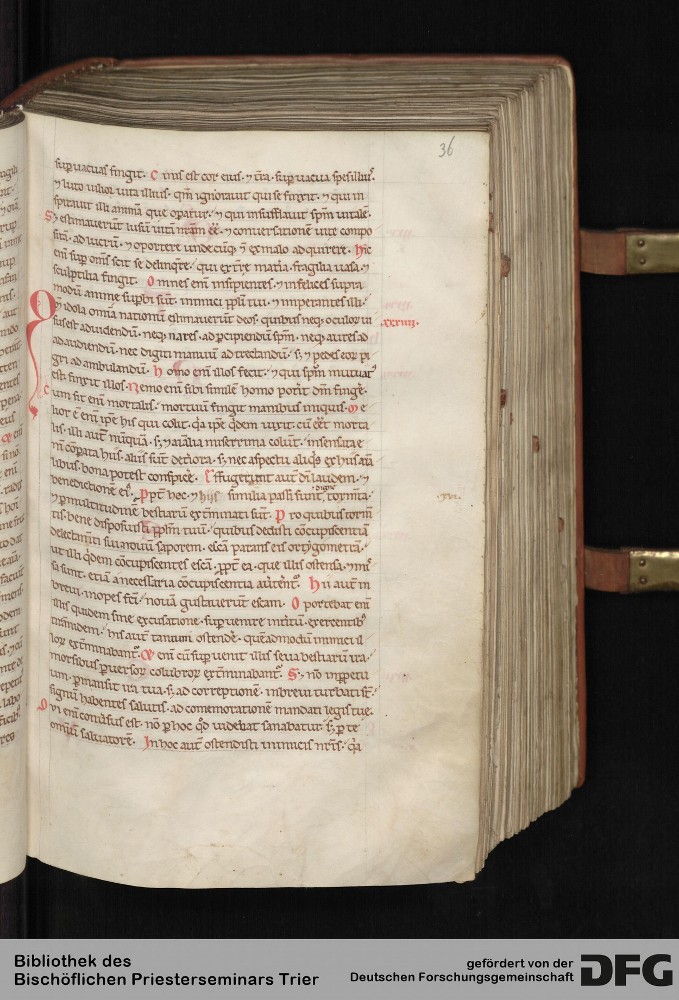 36
supuacuas fingit. Cinis est cor eius. ⁊ t̄ra supuacua spes illiꝰ.
⁊ luto uilior uita illius. qm̄ ignorauit qui se finxit. ⁊ qui in
spirauit illi animā que opatur. ⁊ qui insufflauit spm̄ uitalē.
S; ⁊ estimauerunt lusum uitā nr̄am eē. ⁊ conuersationē uite compo
sitā ad lucrū. ⁊ oportere undecūq; ⁊ ex malo adquirere. Hic
enī sup om̄s scit se delinqre. qui ex t̄re matia fragilia uasa. ⁊
sculptilia fingit. Omnes enī insipientes. ⁊ infelices supra
modū anime supbi sunt. inimici ppli tui. ⁊ imperantes illi.
Qm̄ idola om̄ia nationū estimauerunt deos. quibus neq; oculor̄ ui
sus est ad uidendū. neq; nares ad pcipiendū spm̄. neq; aures ad
xxviiii.
ad audiendū. nec digiti manuū ad tractandū. s; ⁊ pedes eor pi
gri ad ambulandū. Homo enī illos fecit. ⁊ qui spm̄ mutuatꝰ
est. finxit illos. Nemo enī sibi similē homo potit dm̄ fingē.
Cum sit enī mortalis. mortuum fingit manibus iniquis. Me
lior ē enī ipe his qui colit. qa ipe qdem uixit. cū eēt morta
lis. illi aut̄ nūquā. S; ⁊ aīalia miserrima colunt. insensatae
enī cōpata hijs. aliis sunt detiora. S; nec aspectu aliqs ex his aīa
libus. bona potest conspicē. Effugerunt aut̄ dī laudem. ⁊
benedictionē eiꝰ. Ppt̄ hoc. ⁊ hijs similia passi sunt tormta.
digne
.xvi.
⁊ p multitudinē bestiarū ext̄minati sunt. Pro quibus torm̄
tis. bene disposuisti pplm̄ tuū. quibus dedisti cōcupiscentiā
delectamti sui nouum saporem. escā parans eis ortygometrā.
ut illi qdem cōcupiscentes escā. ppt̄ ea. que illis ostensa. ⁊ mis
sa sunt. etiā a necessaria cōcupiscentia auertentꝰ. Hii aut̄ in
breui inopes fc̄i. nouā gustauerunt escam. Oportebat enī
illis quidem sine excusatione. supuenire intitū. exercentibꝰ
tirānidem. his aut̄ tantum ostendē. quēadmodū inimici il
lor ext̄minabantꝰ. Et enī cū supuenit illis seua bestiarū ira.
morsibus puersor colubror ext̄minabantꝰ. S; nō inppetu
um. pmansit ira tua. s; ad correptionē. in breui turbati st̄.
signū habentes salutis. ad comemorationē mandati legis tue.
Qui enī conuersus est. nō p hoc qd uidebat sanabatur. s; p te
omīum saluatorē. In hoc aut̄ ostendisti inimicis nr̄is. qa
Bibliothek des
Bischöflichen Priesterseminars Trier
gefördert von der
Deutschen Forschungsgemeinschaft
DFG